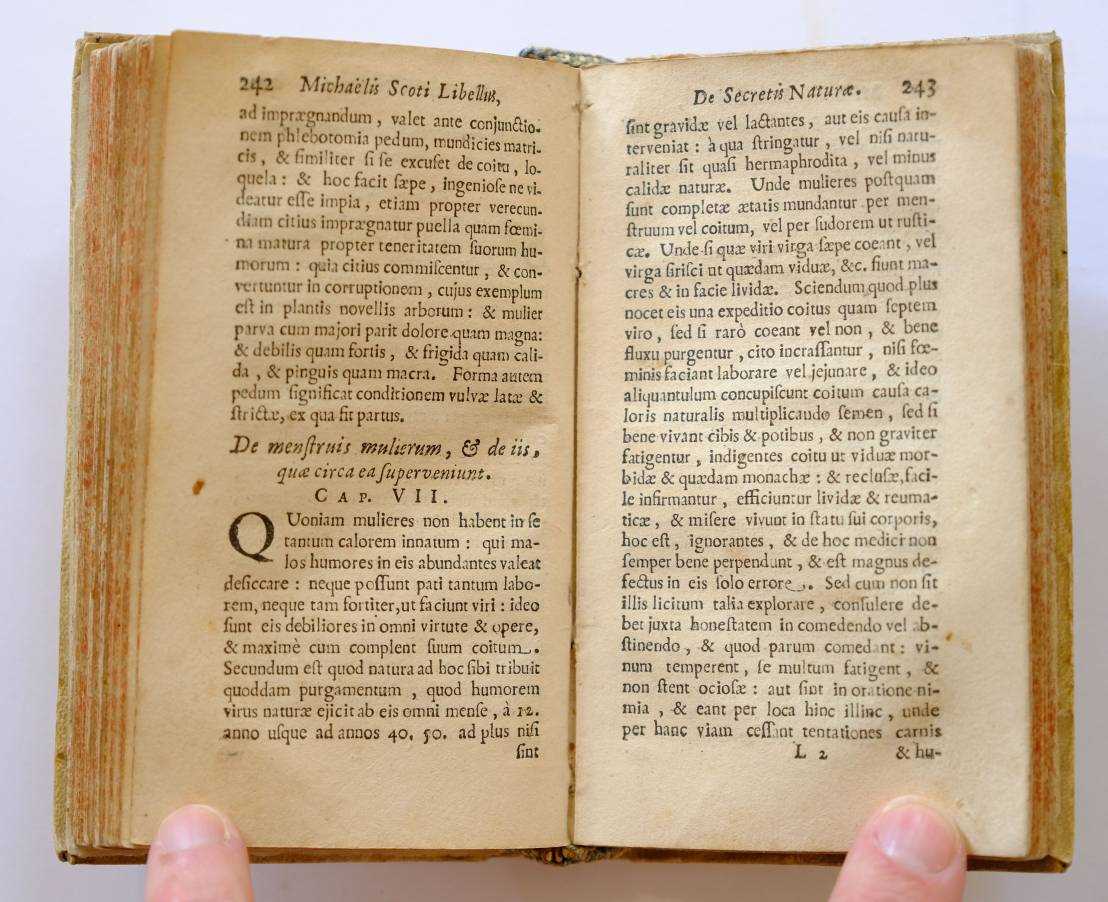 242 Michaëlis Scoti Libellus,
ad imprægnandum, valet ante conjunctio-
nem phlebotomia pedum, mundicies matri-
cis, & similiter si se excuset de coitu, lo-
quela: & hoc facit sæpe, ingeniose ne vi-
deatur esse impia, etiam propter verecun-
diam citius imprægnatur puella quam fœmi-
na matura propter teneritatem suorum hu-
morum: quia citius commiscentur, & con-
vertuntur in corruptionem, cujus exemplum
est in plantis novellis arborum: & mulier
parva cum majori parit dolore quam magna:
& debilis quam fortis, & frigida quam cali-
da, & pinguis quam macra. Forma autem
pedum significat conditionem vulvæ latæ &
strictæ, ex qua fit partus.
De menstruis mulierum, & de iis,
quæ circa ea superveniunt.
CAP. VII.
QUoniam mulieres non habent in se
tantum calorem innatum: qui ma-
los humores in eis abundantes valeat
desiccare: neque possunt pati tantum labo-
rem, neque tam fortiter, ut faciunt viri: ideo
sunt eis debiliores in omni virtute & opere,
& maximè cum complent suum coitum.
Secundum est quod natura ad hoc sibi tribuit
quoddam purgamentum, quod humorem
virus naturæ ejicit ab eis omni mense, à 12.
anno usque ad annos 40. 50. ad plus nisi
sint
De Secretis Naturæ. 243
sint gravidæ vel lactantes, aut eis causa in-
terveniat: à qua stringatur, vel nisi natu-
raliter sit quasi hermaphrodita, vel minus
calidæ naturæ. Unde mulieres postquam
sunt completæ ætatis mundantur per men-
struum vel coitum, vel per sudorem ut rusti-
cæ. Unde si quæ viri virga sæpe coeant, vel
virga sirisci ut quædam viduæ, &c. fiunt ma-
cres & in facie lividæ. Sciendum quod plus
nocet eis una expeditio coitus quam septem
viro, sed si rarò coeant vel non, & bene
fluxu purgentur, cito incrassantur, nisi fœ-
minis faciant laborare vel jejunare, & ideo
aliquantulum concupiscunt coitum causa ca-
loris naturalis multiplicando semen, sed si
bene vivant cibis & potibus, & non graviter
fatigentur, indigentes coitu ut viduæ mor-
bidæ & quædam monachæ: & reclusæ, faci-
le infirmantur, efficiuntur lividæ & reuma-
ticæ, & misere vivunt in statu sui corporis,
hoc est, ignorantes, & de hoc medici non
semper bene perpendunt, & est magnus de-
fectus in eis solo errore. Sed cum non sit
illis licitum talia explorare, consulere de-
bet juxta honestatem in comedendo vel ab-
stinendo, & quod parum comedant: vi-
num temperent, se multum fatigent, &
non stent ociosæ: aut sint in oratione ni-
mia, & eant per loca hinc illinc, unde
per hanc viam cessant tentationes carnis
L 2 & hu-